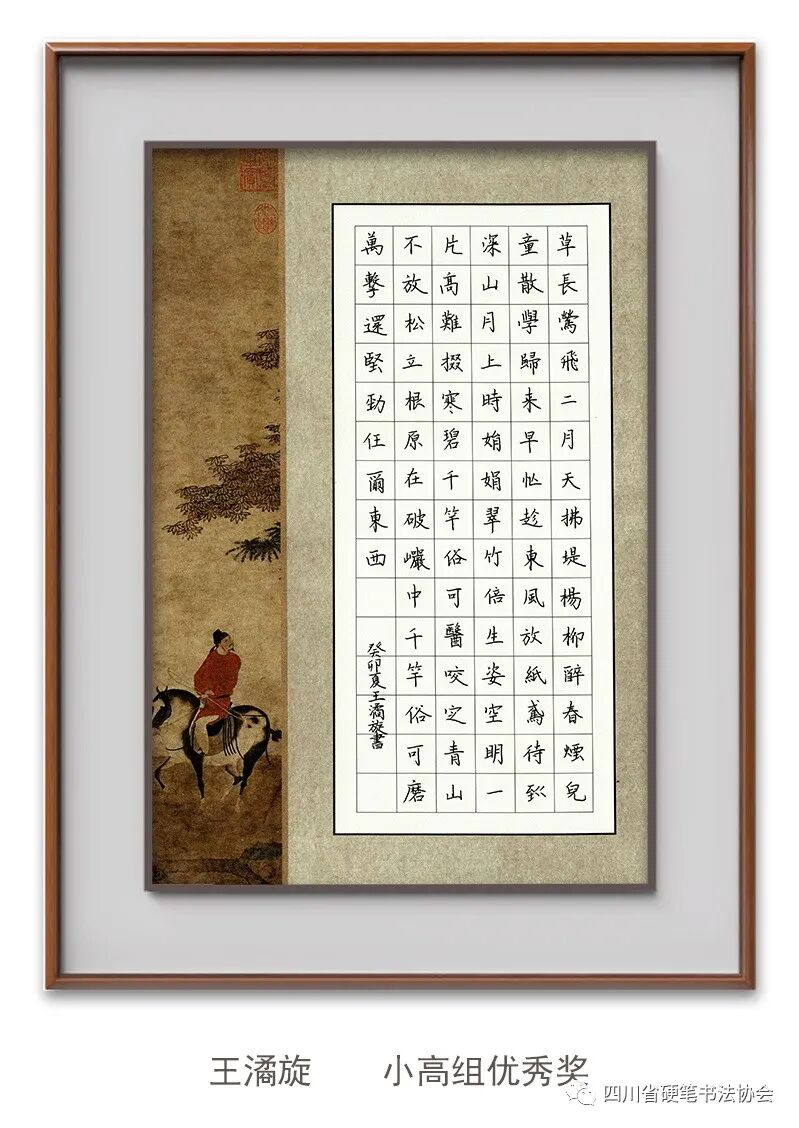 草長鶯飛二月天拂堤楊柳醉春煙兒
童散學歸来早忙趁東風放紙鳶待到
深山月上時娟娟翠竹倍生姿空明一
片高難掇寒碧千竿俗可醫咬定青山
不放松立根原在破巖中千竿俗可磨
萬擊還堅勁任爾東西
癸卯夏王潏旋書
王潏旋 小高组优秀奖
四川省硬笔书法协会